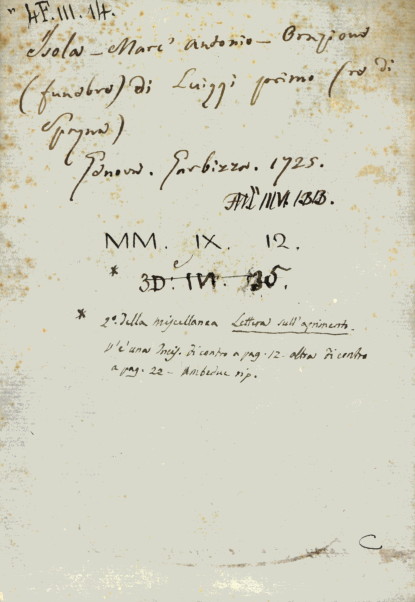 " 4F. III. 14.
Isola - Marc' Antonio - Orazione
(funebre) di Luiggi primo (re di
Spagna)
Genova. Garbizza. 1725.
MM. IX. 12.
* 3D. IV. 35.
* 2º. della miscellanea Lettera sull'aprimento.
V'è una Incis. di contro a pag. 12 - altra di contro
a pag. 22 - Ambedue rip.
C